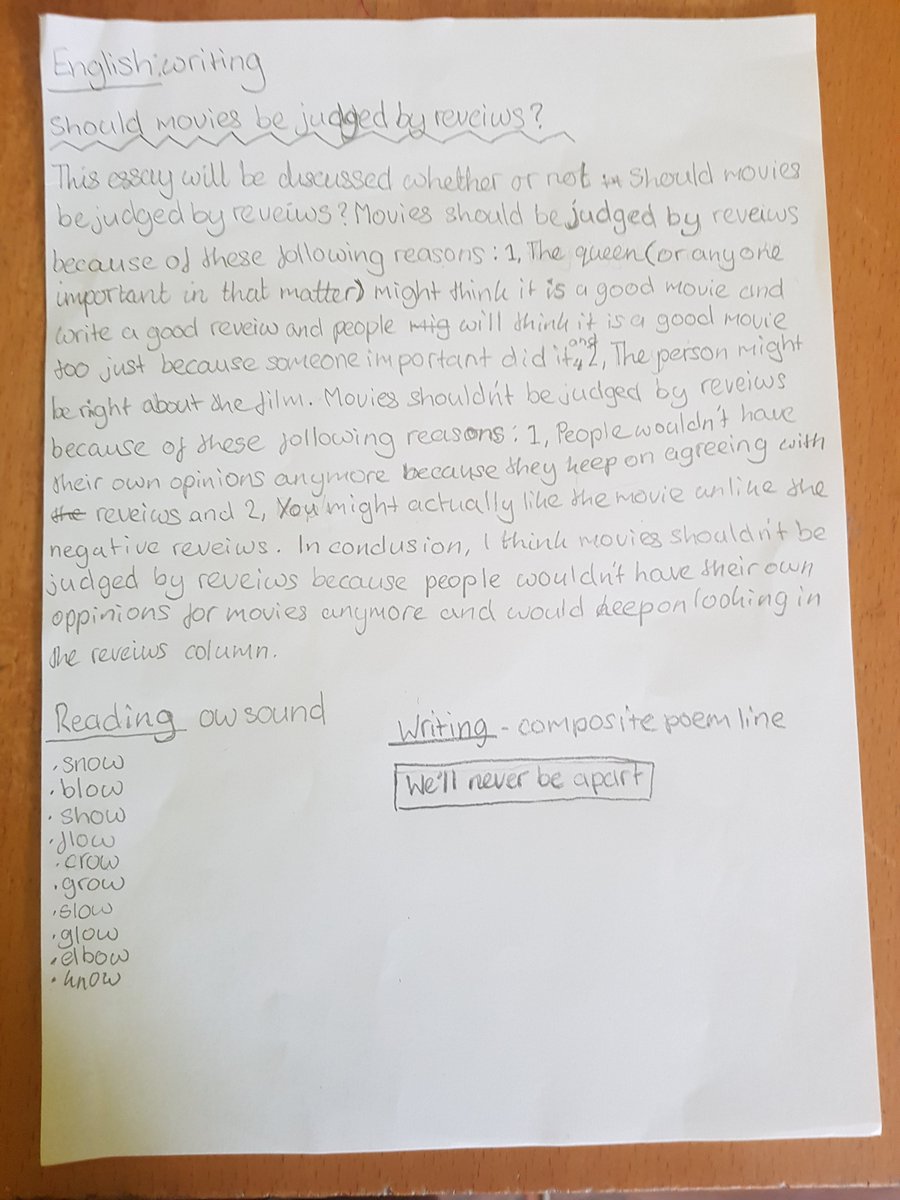 English:writing
Should movies be judged by reveiws?
This essay will be discussed whether or not should movies
be judged by reveiws? Movies should be judged by reveiws
because of these following reasons: 1, The queen (or anyone
important in that matter) might think it is a good movie and
write a good reveiw and people mig will think it is a good movie
too just because someone important did it, and 2, The person might
be right about the film. Movies shouldn't be judged by reveiws
because of these following reasons: 1, People wouldn't have
their own opinions anymore because they keep on agreeing with
the reveiws and 2, You might actually like the movie unlike the
negative reveiws. In conclusion, I think movies shouldn't be
judged by reveiws because people wouldn't have their own
oppinions for movies anymore and would keep on looking in
the reveiws column.
Reading ow sound
·snow
·blow
·show
·flow
·crow
·grow
·slow
·glow
·elbow
·know
Writing - composite poem line
We'll never be apart